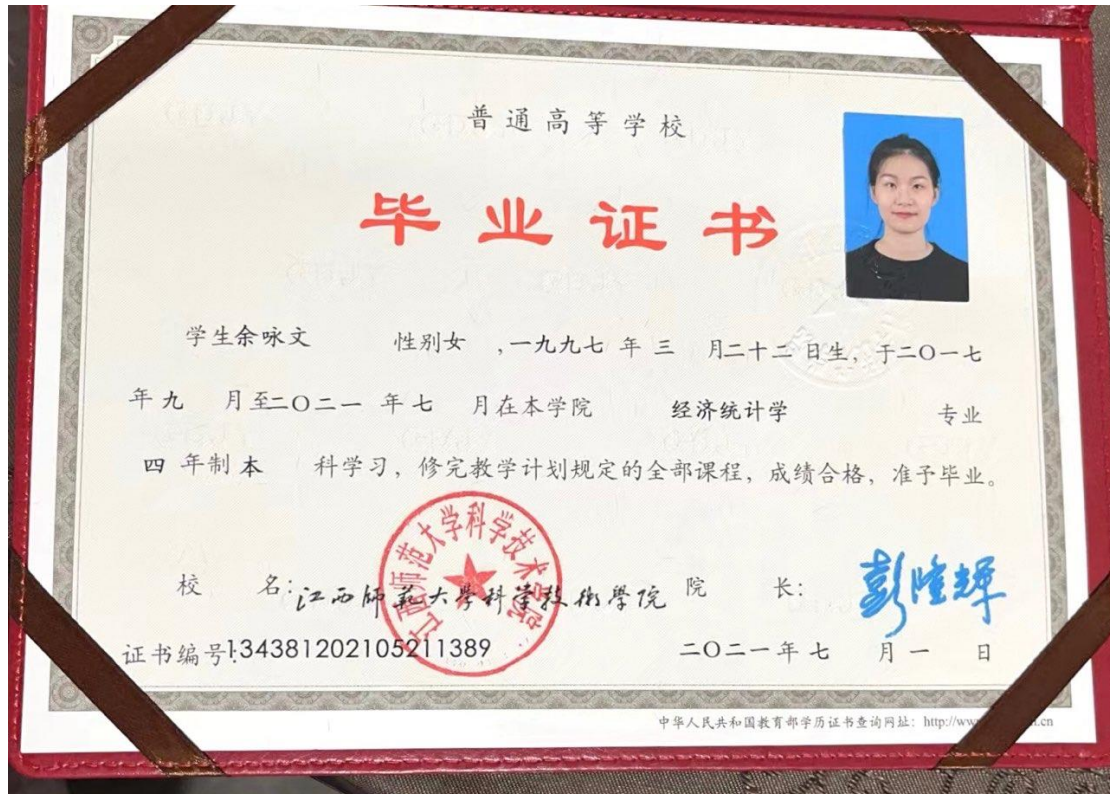 普通高等学校
毕业证书
学生余咏文 性别女 ,一九九七 年 三 月二十二 日生, 于二〇一七
年九 月至二〇二一 年七 月在本学院 经济统计学 专业
四 年制 本 科学习, 修完教学计划规定的全部课程, 成绩合格, 准予毕业。
江西师范大学科学技术学院
校 名: 江西師範大學科学技術學院 院 长: 彭隆辉
证书编号:134381202105211389 二〇二一年七 月一 日
中华人民共和国教育部学历证书查询网址: http://www